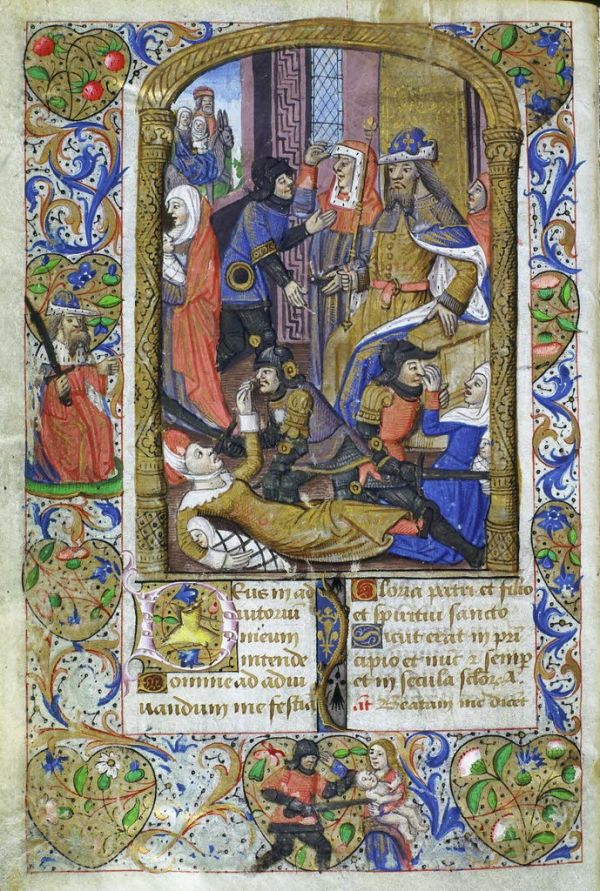 Deus in ad
iutoriū
meum
intende
Domine ad adiu
uandum me festīa
Gloria patri et filio
et spiritui sancto
Sicut erat in prī
cipio et nūc ⁊ semꝑ
et in secula sclorꝝ A.
añ Beatam me dicēt